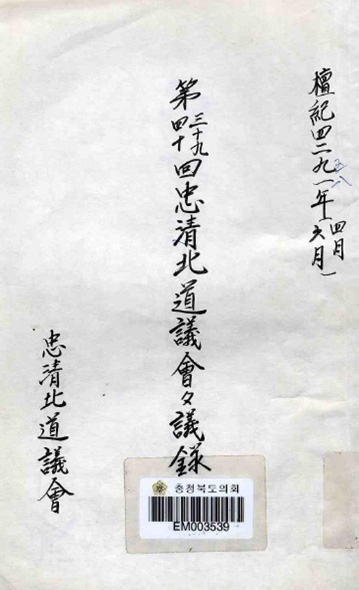 檀紀四二九一年(四月
六月)
五八
第三十九
四十回忠清北道議會會議錄
忠清北道議會
충청북도의회
EM003539